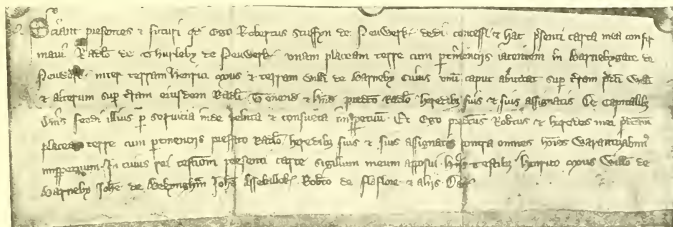 Sciant presentes & futuri qd Ego Robertus Stuffyn de Newerk dedi concessi & hac psenti carta mea confir
mavi Radlo de Thurleby de Newerk unam placeam terre cum ptinenciis iacentem in Barnebygate de
Newerk inter terram Henrici & terram Willi de Barneby cuius unū caput abuttat sup tram dcti Willi
& alterum sup tram eiusdem Radli Tenend & hend predcto Radlo heredibz suis & suis assignatis De capitalibz
dnis feodi illius p servicia inde debita & consueta inppetuum Et Ego pdictus Robtus & heredes mei pdictam
placeam terre cum ptinenciis prefato Radlo heredibz suis & suis assignatis contra omnes hoies Warantizabimz
inppetuum In cuius rei testiom presenti carte sigillum meum apposui Hiis testibz Henrico Willo de
Barneby Johe de Johe Robto de & aliis